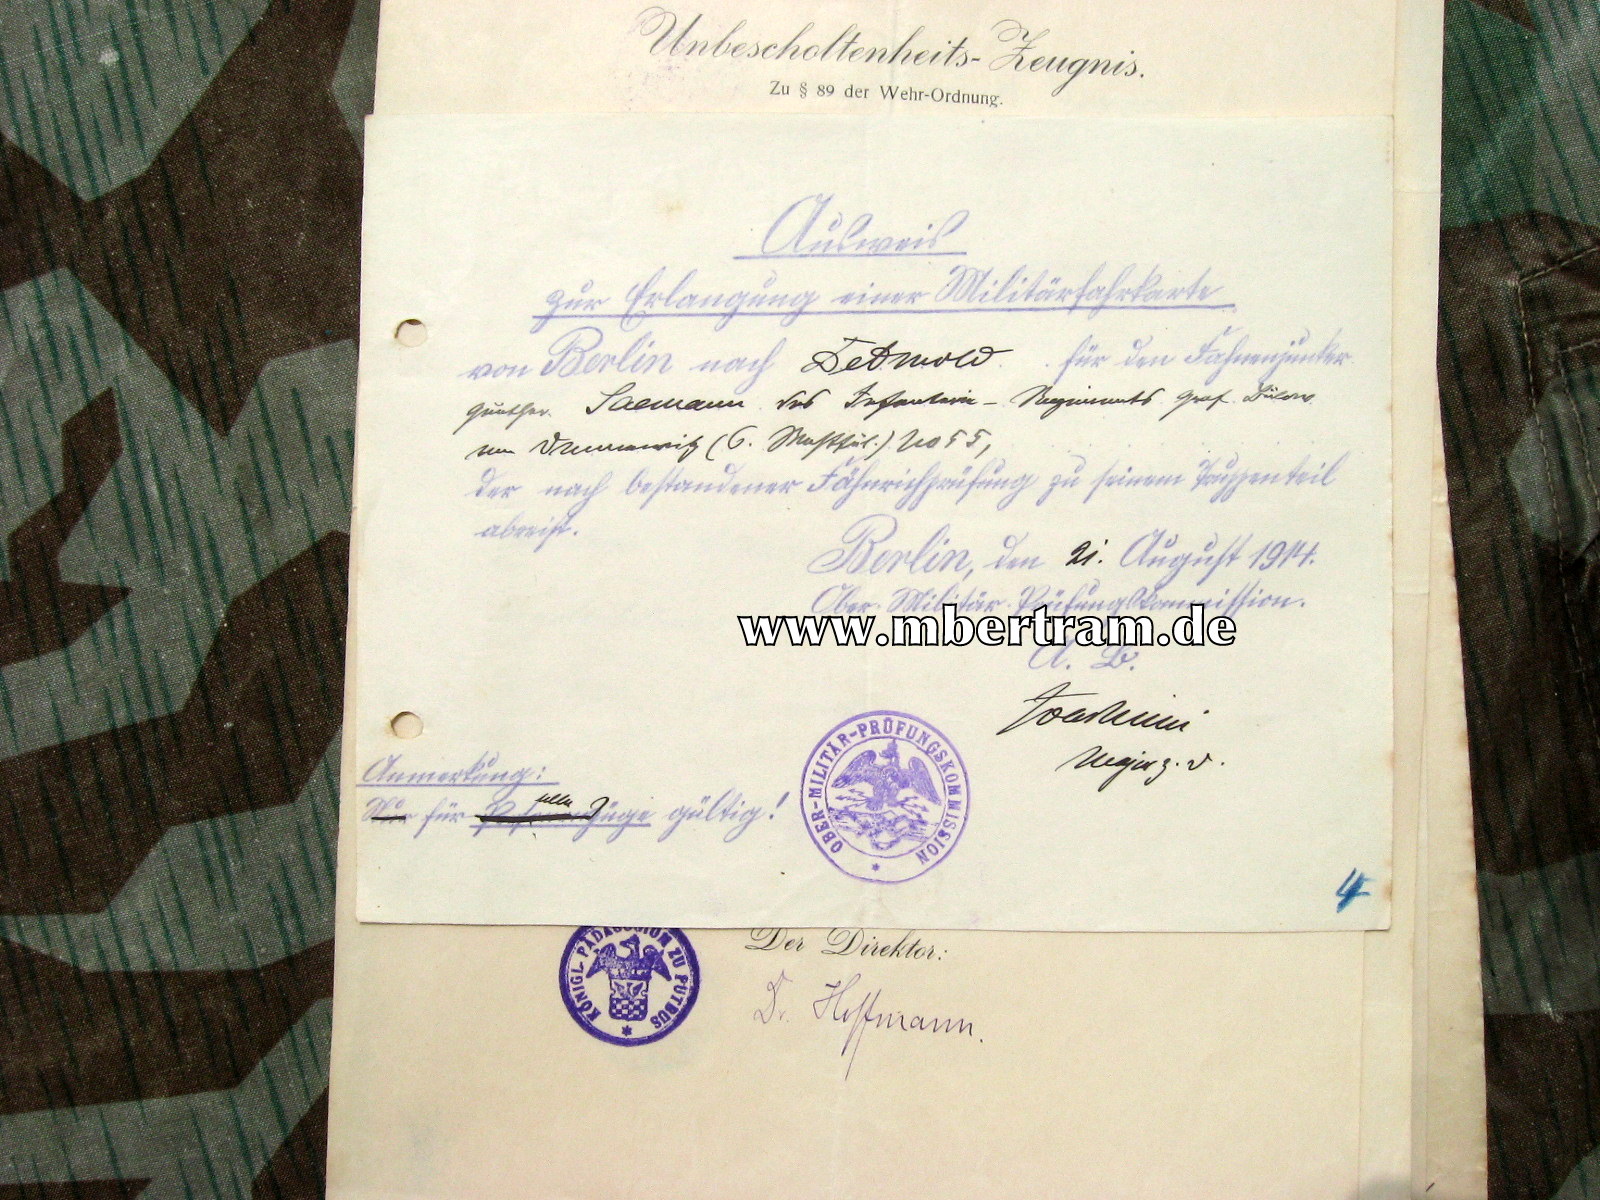 Unbescholtenheits-Zeugnis.
Zu § 89 der Wehr-Ordnung.
Ausweis
zur Erlangung einer Militärfahrkarte
von Berlin nach Detmold für den Fahnenjunker
Günther Saemann des Infanterie-Regiments Graf Bülow
von Dennewitz (6. Westfäl.) No 55,
der nach bestandener Fähnrichprüfung zu seinem Truppenteil
abreist.
Berlin, den 21. August 1914.
Ober-Militär-Prüfungskommission.
www.mbertram.de
Major z. D.
Anmerkung:
Nur für alle Züge gültig!
OBER-MILITÄR-PRÜFUNGSKOMMISSION
4
KÖNIGL. PÄDAGOGIUM ZU PUTBUS
Der Direktor:
Dr. Hoffmann.